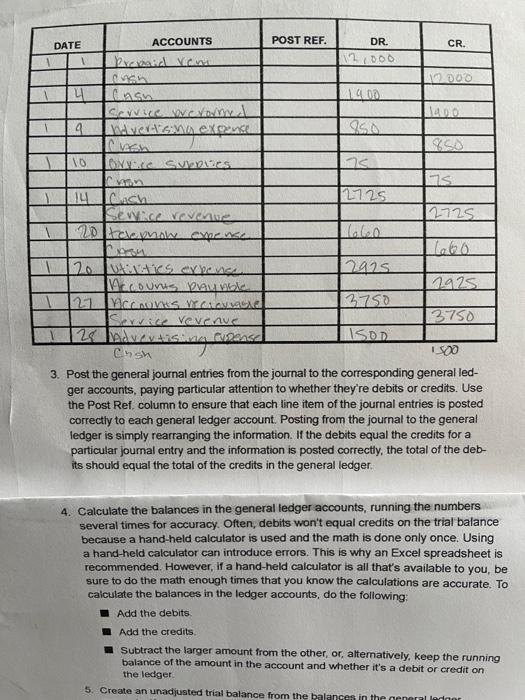 DATE ACCOUNTS POST REF. DR. CR.
1 1 Prepaid rent 12,000
Cash 12000
1 4 Cash 1900
Service 1900
1 9 Advertising expense 850
Cash 850
1 10 Office supplies 75
Cash 75
1 14 Cash 2725
Service revenue 2725
1 20 telephone expense 660
Cash 660
1 20 Utilities expense 2925
Accounts payable 2925
1 27 Accounts 3750
Service revenue 3750
1 28 Advertising expense 1500
Cash 1500
3. Post the general journal entries from the journal to the corresponding general led-
ger accounts, paying particular attention to whether they're debits or credits. Use
the Post Ref. column to ensure that each line item of the journal entries is posted
correctly to each general ledger account. Posting from the journal to the general
ledger is simply rearranging the information. If the debits equal the credits for a
particular journal entry and the information is posted correctly, the total of the deb-
its should equal the total of the credits in the general ledger.
4. Calculate the balances in the general ledger accounts, running the numbers
several times for accuracy. Often, debits won't equal credits on the trial balance
because a hand-held calculator is used and the math is done only once. Using
a hand-held calculator can introduce errors. This is why an Excel spreadsheet is
recommended. However, if a hand-held calculator is all that's available to you, be
sure to do the math enough times that you know the calculations are accurate. To
calculate the balances in the ledger accounts, do the following:
■ Add the debits.
■ Add the credits.
■ Subtract the larger amount from the other, or, alternatively, keep the running
balance of the amount in the account and whether it's a debit or credit on
the ledger.
5. Create an unadjusted trial balance from the balances in the general ledger